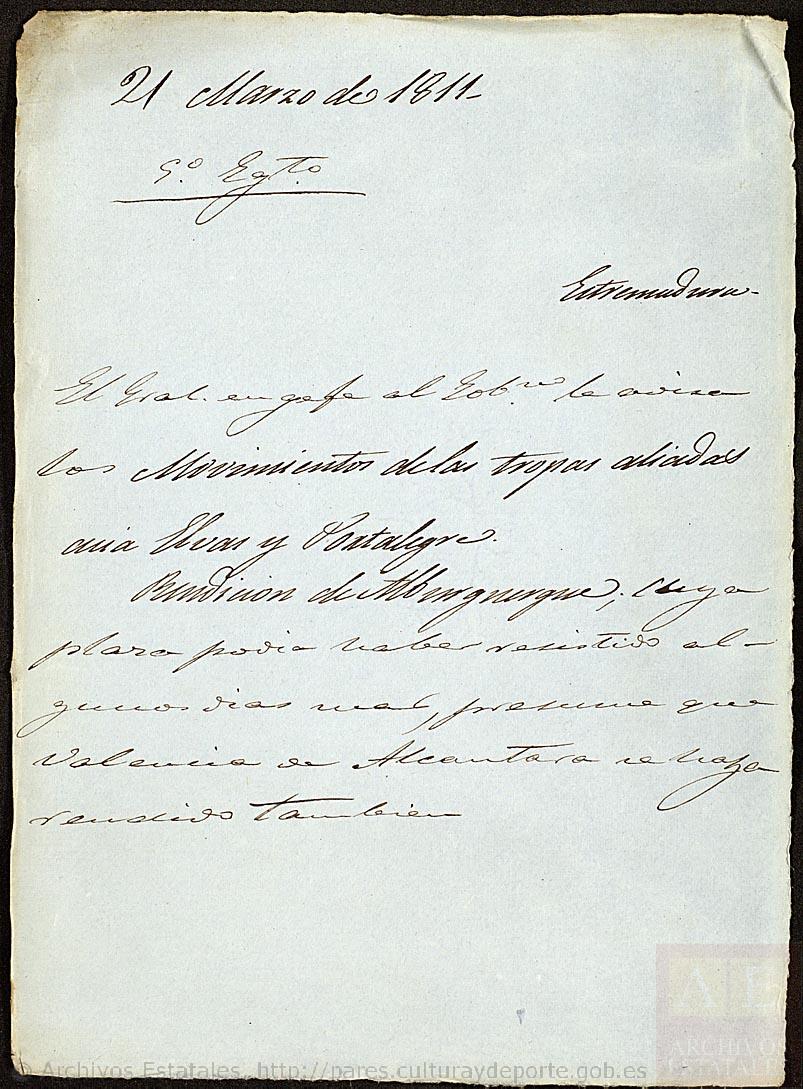 21 Marzo de 1811-
5º Egto.
Estremadura-
El Gral. en gefe al Gobno le avisa
los Movimientos de las tropas aliadas
acia Elvas y Portalegre.
Rendicion de Alburquerque; cuya
plaza podia haber resistido al-
gunos dias mas, presume que
Valencia de Alcantara se haya
rendido tambien
AE
ARCHIVOS
ESTATALES
© Archivos Estatales, http://pares.culturaydeporte.gob.es